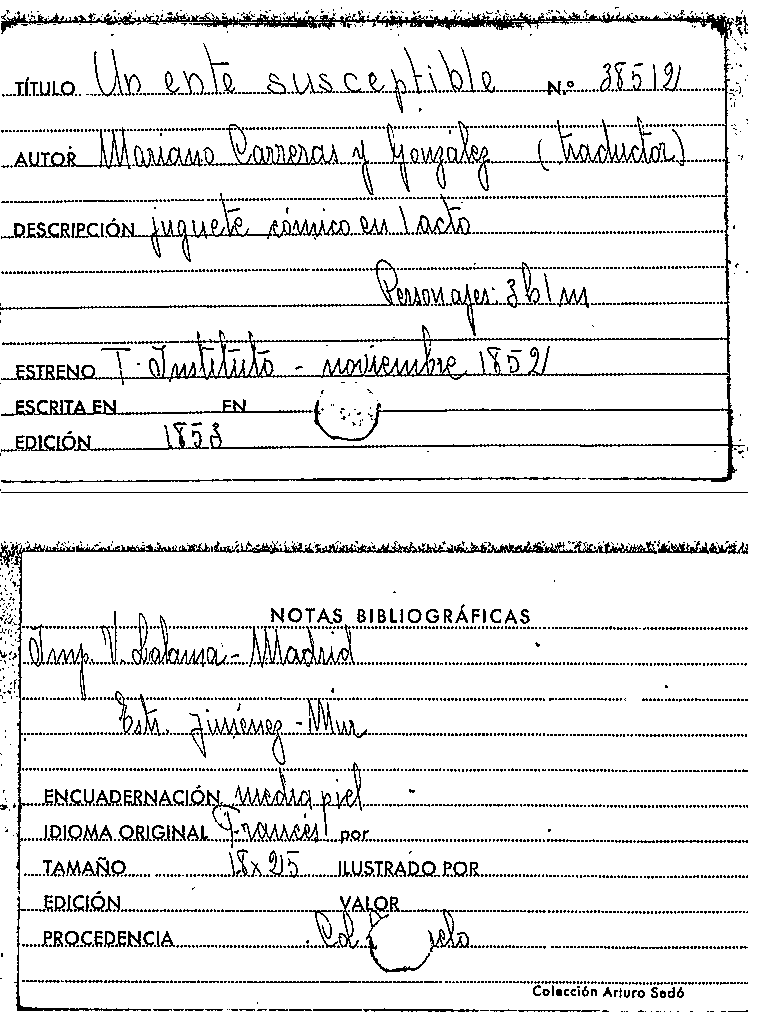 TÍTULO Un ente susceptible N.º 38512
AUTOR Mariano Carreras y González (traductor)
DESCRIPCIÓN juguete cómico en 1 acto
Personajes: 3h 1m
ESTRENO T. Instituto - noviembre 1852
ESCRITA EN EN
EDICIÓN 1853
NOTAS BIBLIOGRÁFICAS
Imp. V. Lalama - Madrid
Estr. Jiménez - Mur
ENCUADERNACIÓN media piel
IDIOMA ORIGINAL Francés por
TAMAÑO 18x25 ILUSTRADO POR
EDICIÓN VALOR
PROCEDENCIA Col.
Colección Arturo Sedó